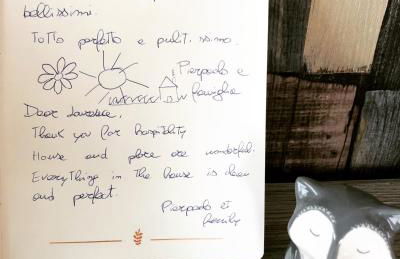 bellissimi.
Tutto perfetto e pulitissimo.
Pierpaolo e
famiglia
Dear Laurence,
Thank you for hospitality
House and place are wonderful.
Everything in the house is clean
and perfect.
Pierpaolo et
family